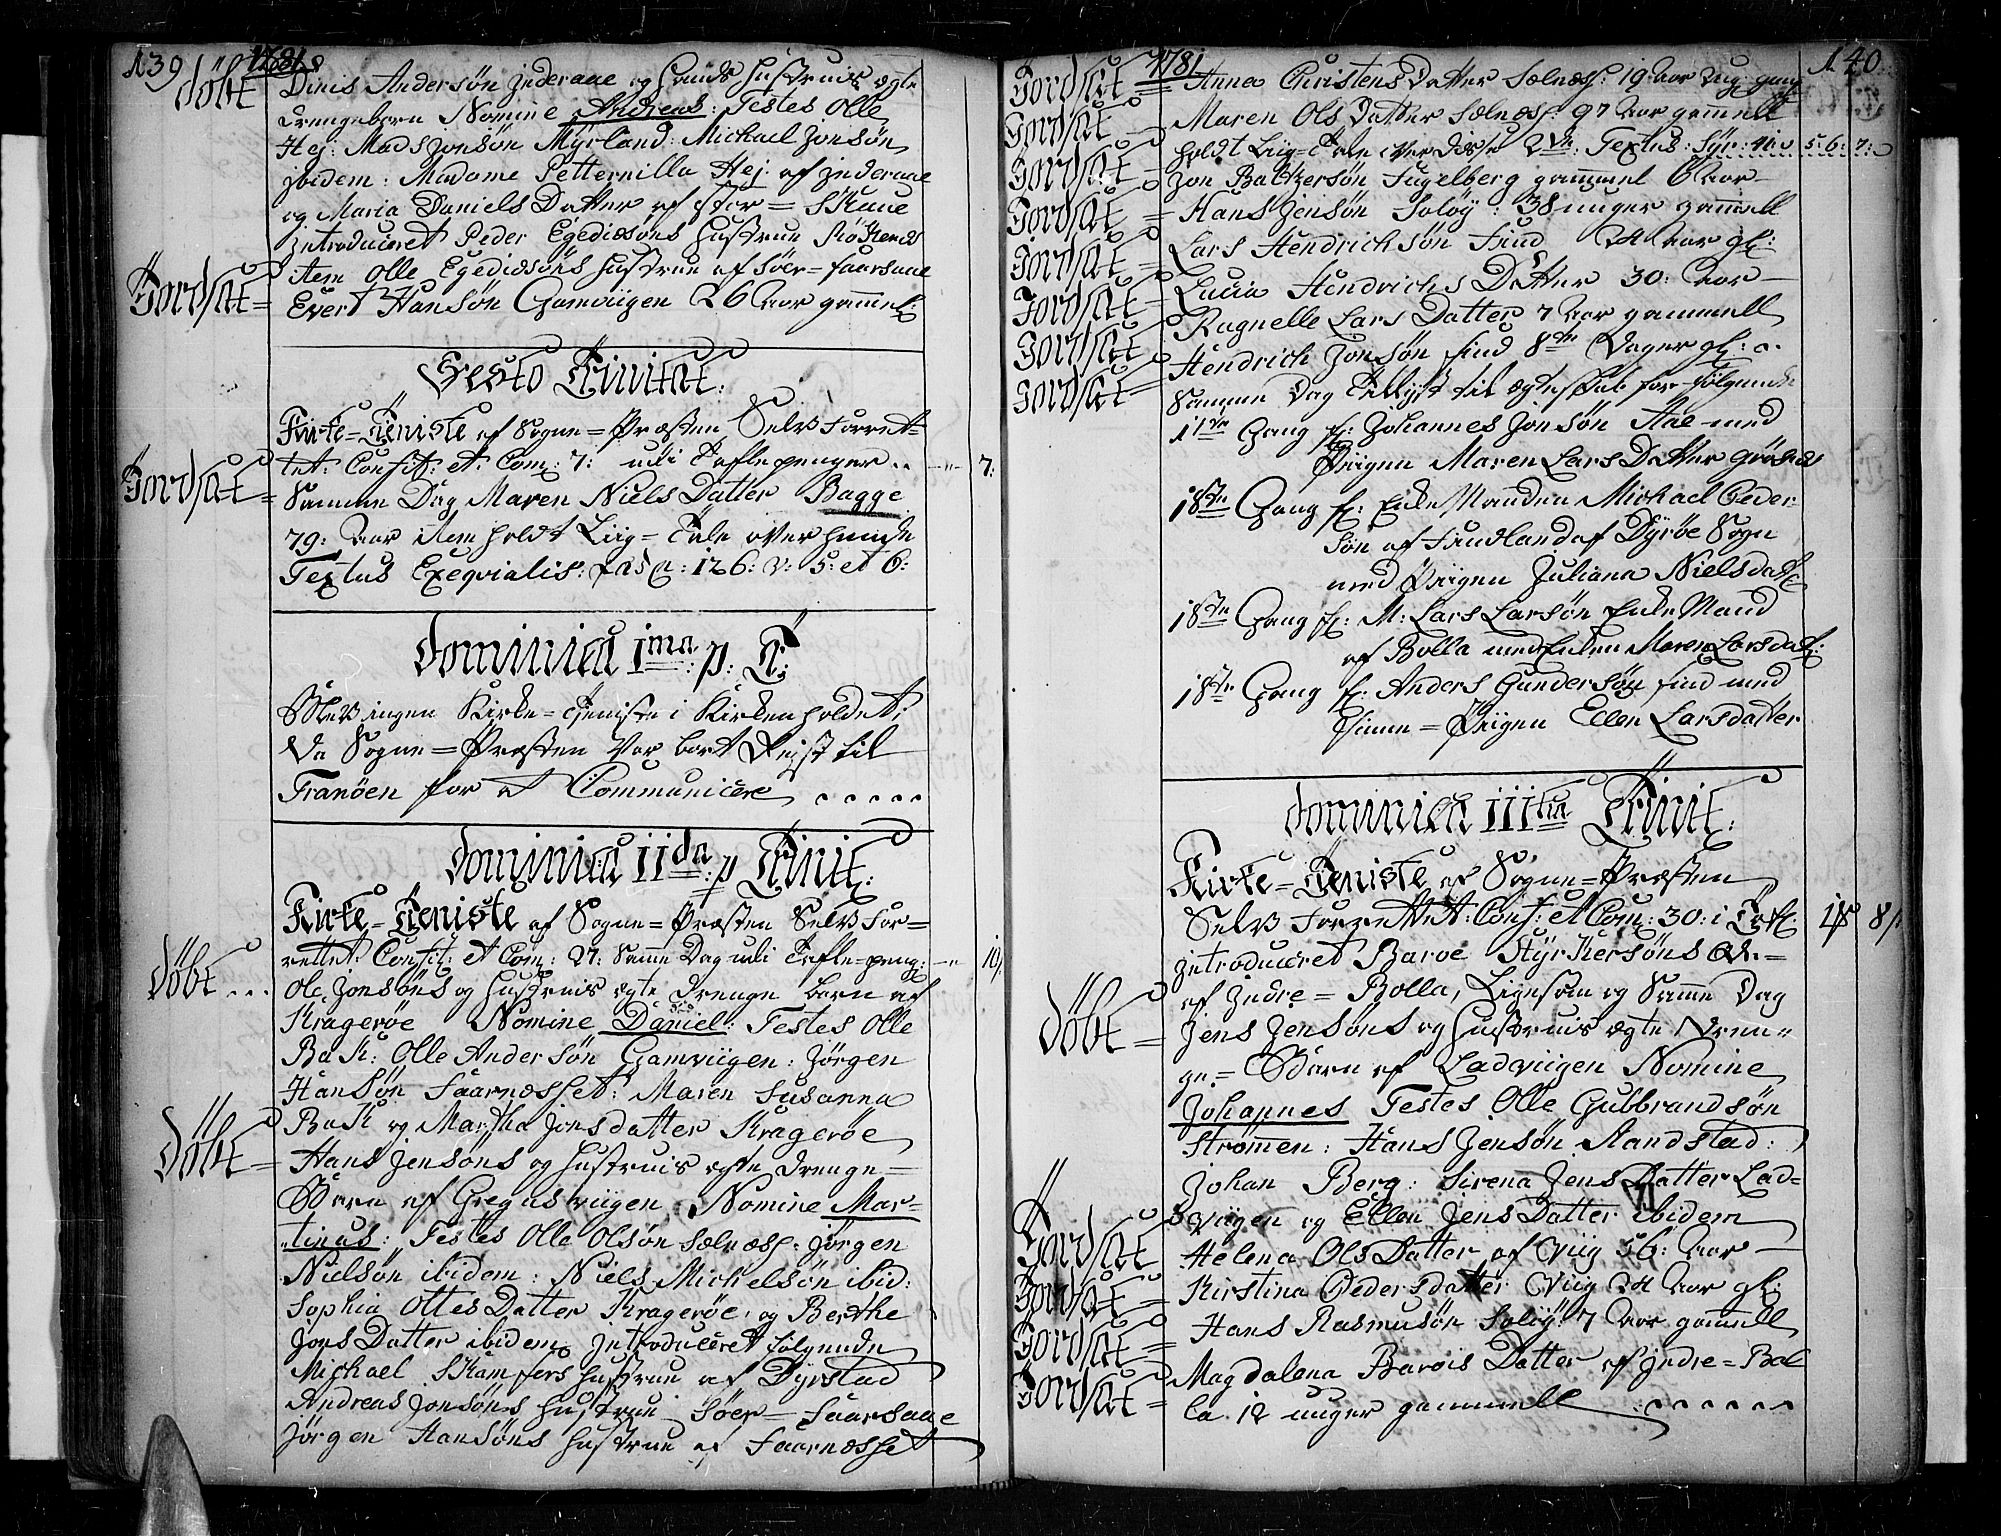 139 1781
døbt Dinis Andersøn Inderaae og hands hustrues ægte
drengebarn Nomine Andreas: Testes Olle
Hej: Mads Jonsøn Myrland: Michael Jonsøn
ibidem: Madame Petternilla Hej: af Inderaae
og Maria Daniels Datter af Stor=Skaue
Introduceret Peder Egediøsøns hustrue
item Olle Egediøsøns hustrue af Søer=Faarsaae
Jordsat= Evert Hansøn Gamviigen 26 Aar gammel
Festo Trinitat:
Kirke=Tieniste af Sogne=Præsten Selv Forret=
tet: Confit: et Com: 7: udi Tafle penger .. 7:
Jordsat= Samme Dag Maren Niels Datter Bagge
79: Aar item holdt Liig=Tale over hende
Textus Exeqvialis: Psa: 126: v: 5: et 6:
Dominica Ima: p: T:
Blev ingen Kirke=Tieniste i Kirken holdet,
da Sogne=Præsten Var bort Rejst til
Tranöen for at Communicere
Dominica IIda: p Trinit:
Kirke=Tieniste af Sogne=Præsten Selv For=
rettet: Confit: et Com: 27: Samme Dag udi Tafle=peng: 10
døbt... Ole Jonsøns og hustrues ægte drenge barn af
Kragerøe Nomine Daniel: Testes Olle
Bak: Olle Andersøn Gamviigen: Jörgen
Hansøn Faarnæsset: Maren Susanna
Bak og Martha Jonsdatter Kragerøe
døbt= Hans Jensøns og hustrues ægte drenge=
Barn af Gregusviigen Nomine Mar=
tinus: Testes Olle Olsøn Sælnæss: Jörgen
Nielsøn ibidem: Niels Michelsøn ibid:
Sophia Ottes Datter Kragerøe: og Berthe
Jons Datter ibidem Introduceret følgende
Michael Skamfers hustrue af Dyrstad
Andreas Jonsøns hustrue Söer=Faarsaae
Jörgen Hansøns hustrue af Faarnæsset
1781 140
Jordsat Anna Christens Datter Sælnæss: 19 Aar
Jordsat Maren Ols Datter Sælnæss: 97 Aar gammell
holdt Liig=Tale over disse 2de: Textus: Syr: 41: v 5: 6: 7:
Jordsat Jon Baltzersøn Fugelberg gammel 6 Aar
Jordsat= Hans Jensøn Soløy: 38 uger gammell
Jordsat= Lars Hendrichsøn Find 24 Aar gl:
Jordsat= Lucia Hendrichs Datter 30: Aar
Jordsat Ragnelle Lars Datter 7 Aar gammell
Jordsat= Hendrich Jonsøn Find 8te Dager gl:
Samme Dag Tillyst til Ægteskab for følgende
1ste Gang f: Johannes Jonsøn Aae med
Piigen Maren Lars Datter Grøsnæs
1ste Gang f: Enke Manden Michael Peder=
søn af Findland af Dyrøe Sogn
med Piigen Juliana Nielsdatt:
1ste Gang f: M: Lars Larsøn Enke Mand
af Bolla med Enken Maren Larsdatt:
1ste Gang f: Anders Gundersøn Find med
Finne=Piigen Ellen Larsdatter
Dominica IIItia Trinit:
Kirke=Tieniste af Sogne=Præsten
Selv Forrettet: Conf: et Com: 30: i Tafl:
Introduceret Baroe Styrkersøns Qv:=
af Indre=Bolla, Ligesom og Samme Dag
døbt= Jens Jensøns og hustrues ægte Dren=
ge=Barn af Ladviigen Nomine
Johannes Testes Olle Gulbrandsøn
Strømmen: Hans Jensøn Randstad:
Johan Berg: Sirena Jens Datter Lad=
viigen og Ellen Jens Datter ibidem
Jordsat Helena Ols Datter af Viig 56: Aar
Jordsat= Kirstina Pedersdatter Viig 24 Aar gl:
Jordsat= Hans Rasmusøn Soløy 7 Aar gammell
Jordsat= Magdalena Barois Datter af Indre=Bol
la 12 uuger gammell